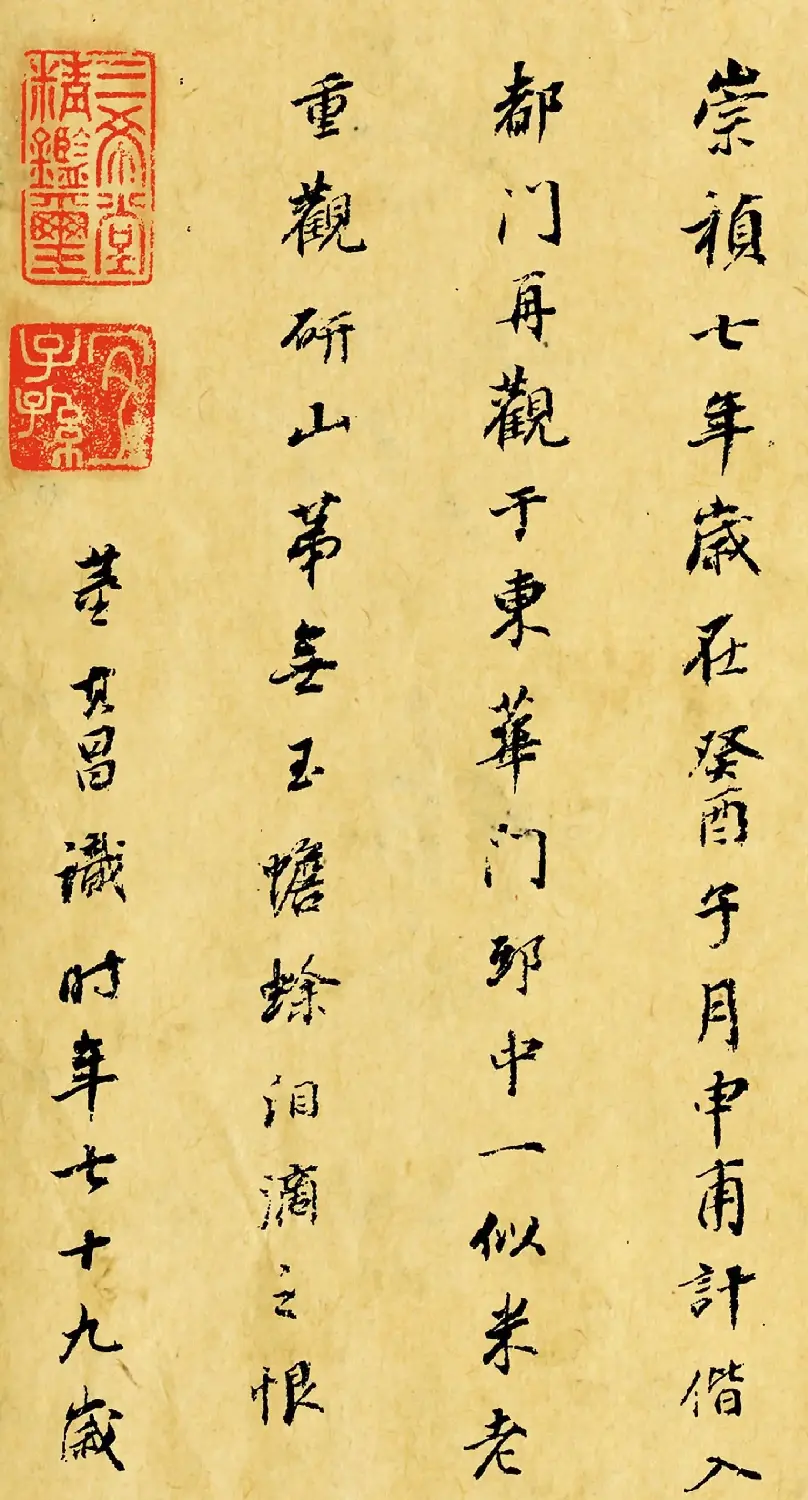 崇禎七年歲在癸酉子月申甫計偕入
都門再觀于東華門邸中一似米老
重觀研山第無玉蟾蜍泪滴之恨
董其昌識时年七十九歲
三希堂精鑑璽
宜子孫